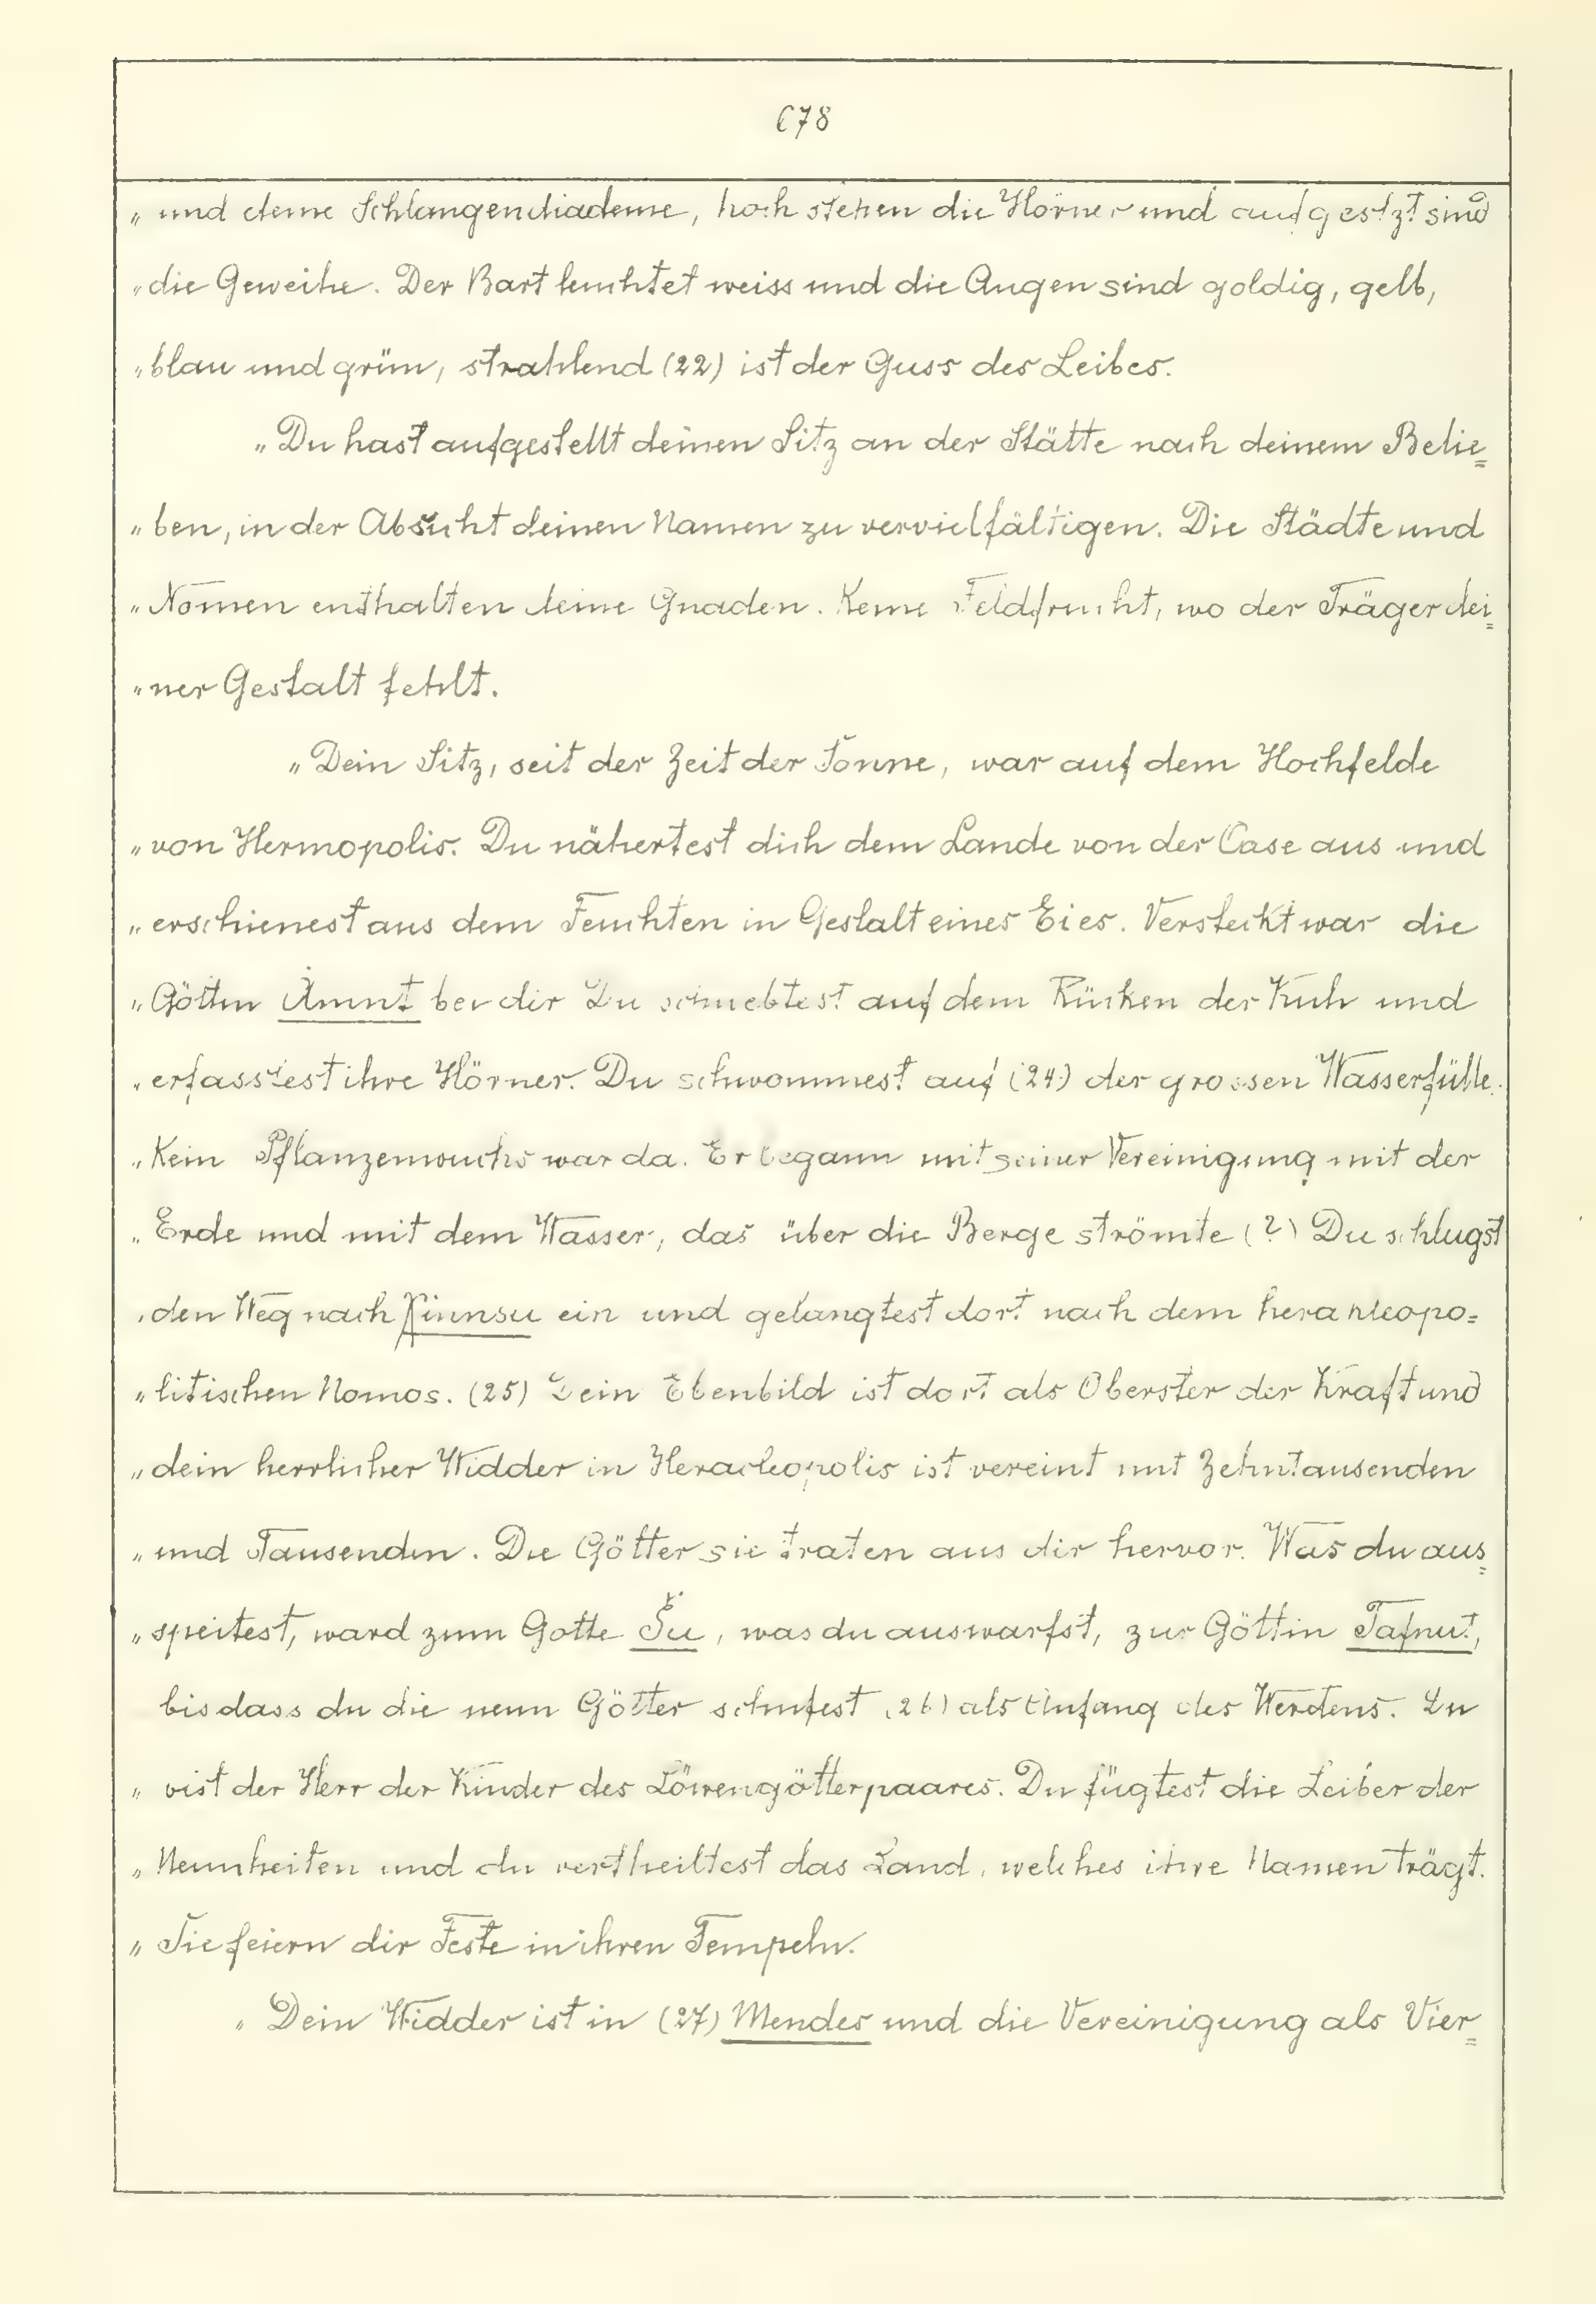 678
„ und deine Schlangendiademe, hoch stehen die Hörner und aufgesetzt sind
„ die Geweihe. Der Bart leuchtet weiss und die Augen sind goldig, gelb,
„ blau und grün, strahlend (22) ist der Guss des Leibes.
„ Du hast aufgestellt deinen Sitz an der Stätte nach deinem Belie=
„ ben, in der Absicht deinen Namen zu vervielfältigen. Die Städte und
„ Nomen enthalten deine Gnaden. Keine Feldfrucht, wo der Träger dei=
„ ner Gestalt fehlt.
„ Dein Sitz, seit der Zeit der Sonne, war auf dem Hochfelde
„ von Hermopolis. Du nähertest dich dem Lande von der Oase aus und
„ erschienest aus dem Feuchten in Gestalt eines Eies. Versteckt war die
„ Göttin Amnt bei dir Du schwebtest auf dem Rücken der Kuh und
„ erfasstest ihre Hörner. Du schwommest auf (24) der grossen Wasserfülle.
„ Kein Pflanzenwuchs war da. Er begann mit seiner Vereinigung mit der
„ Erde und mit dem Wasser, das über die Berge strömte (?) Du schlugst
„ den Weg nach Ḫinnsu ein und gelangtest dort nach dem herakleopo=
„ litischen Nomos. (25) Dein Ebenbild ist dort als Oberster der Kraft und
„ dein herrlicher Widder in Heracleopolis ist vereint mit Zehntausenden
„ und Tausenden. Die Götter sie traten aus dir hervor. Was du aus=
„ speitest, ward zum Gotte Šu, was du auswarfst, zur Göttin Tafnut,
bis dass du die neun Götter schufest (26) als Anfang des Werdens. Du
„ bist der Herr der Kinder des Löwengötterpaares. Du fügtest die Leiber der
„ Neunheiten und du vertheiltest das Land, welches ihre Namen trägt.
„ Sie feiern dir Feste in ihren Tempeln.
„ Dein Widder ist in (27) Mendes und die Vereinigung als Vier=